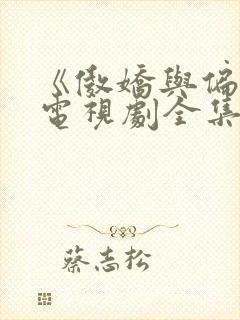 《傲嬌與偏
電視劇全集
蔡志松